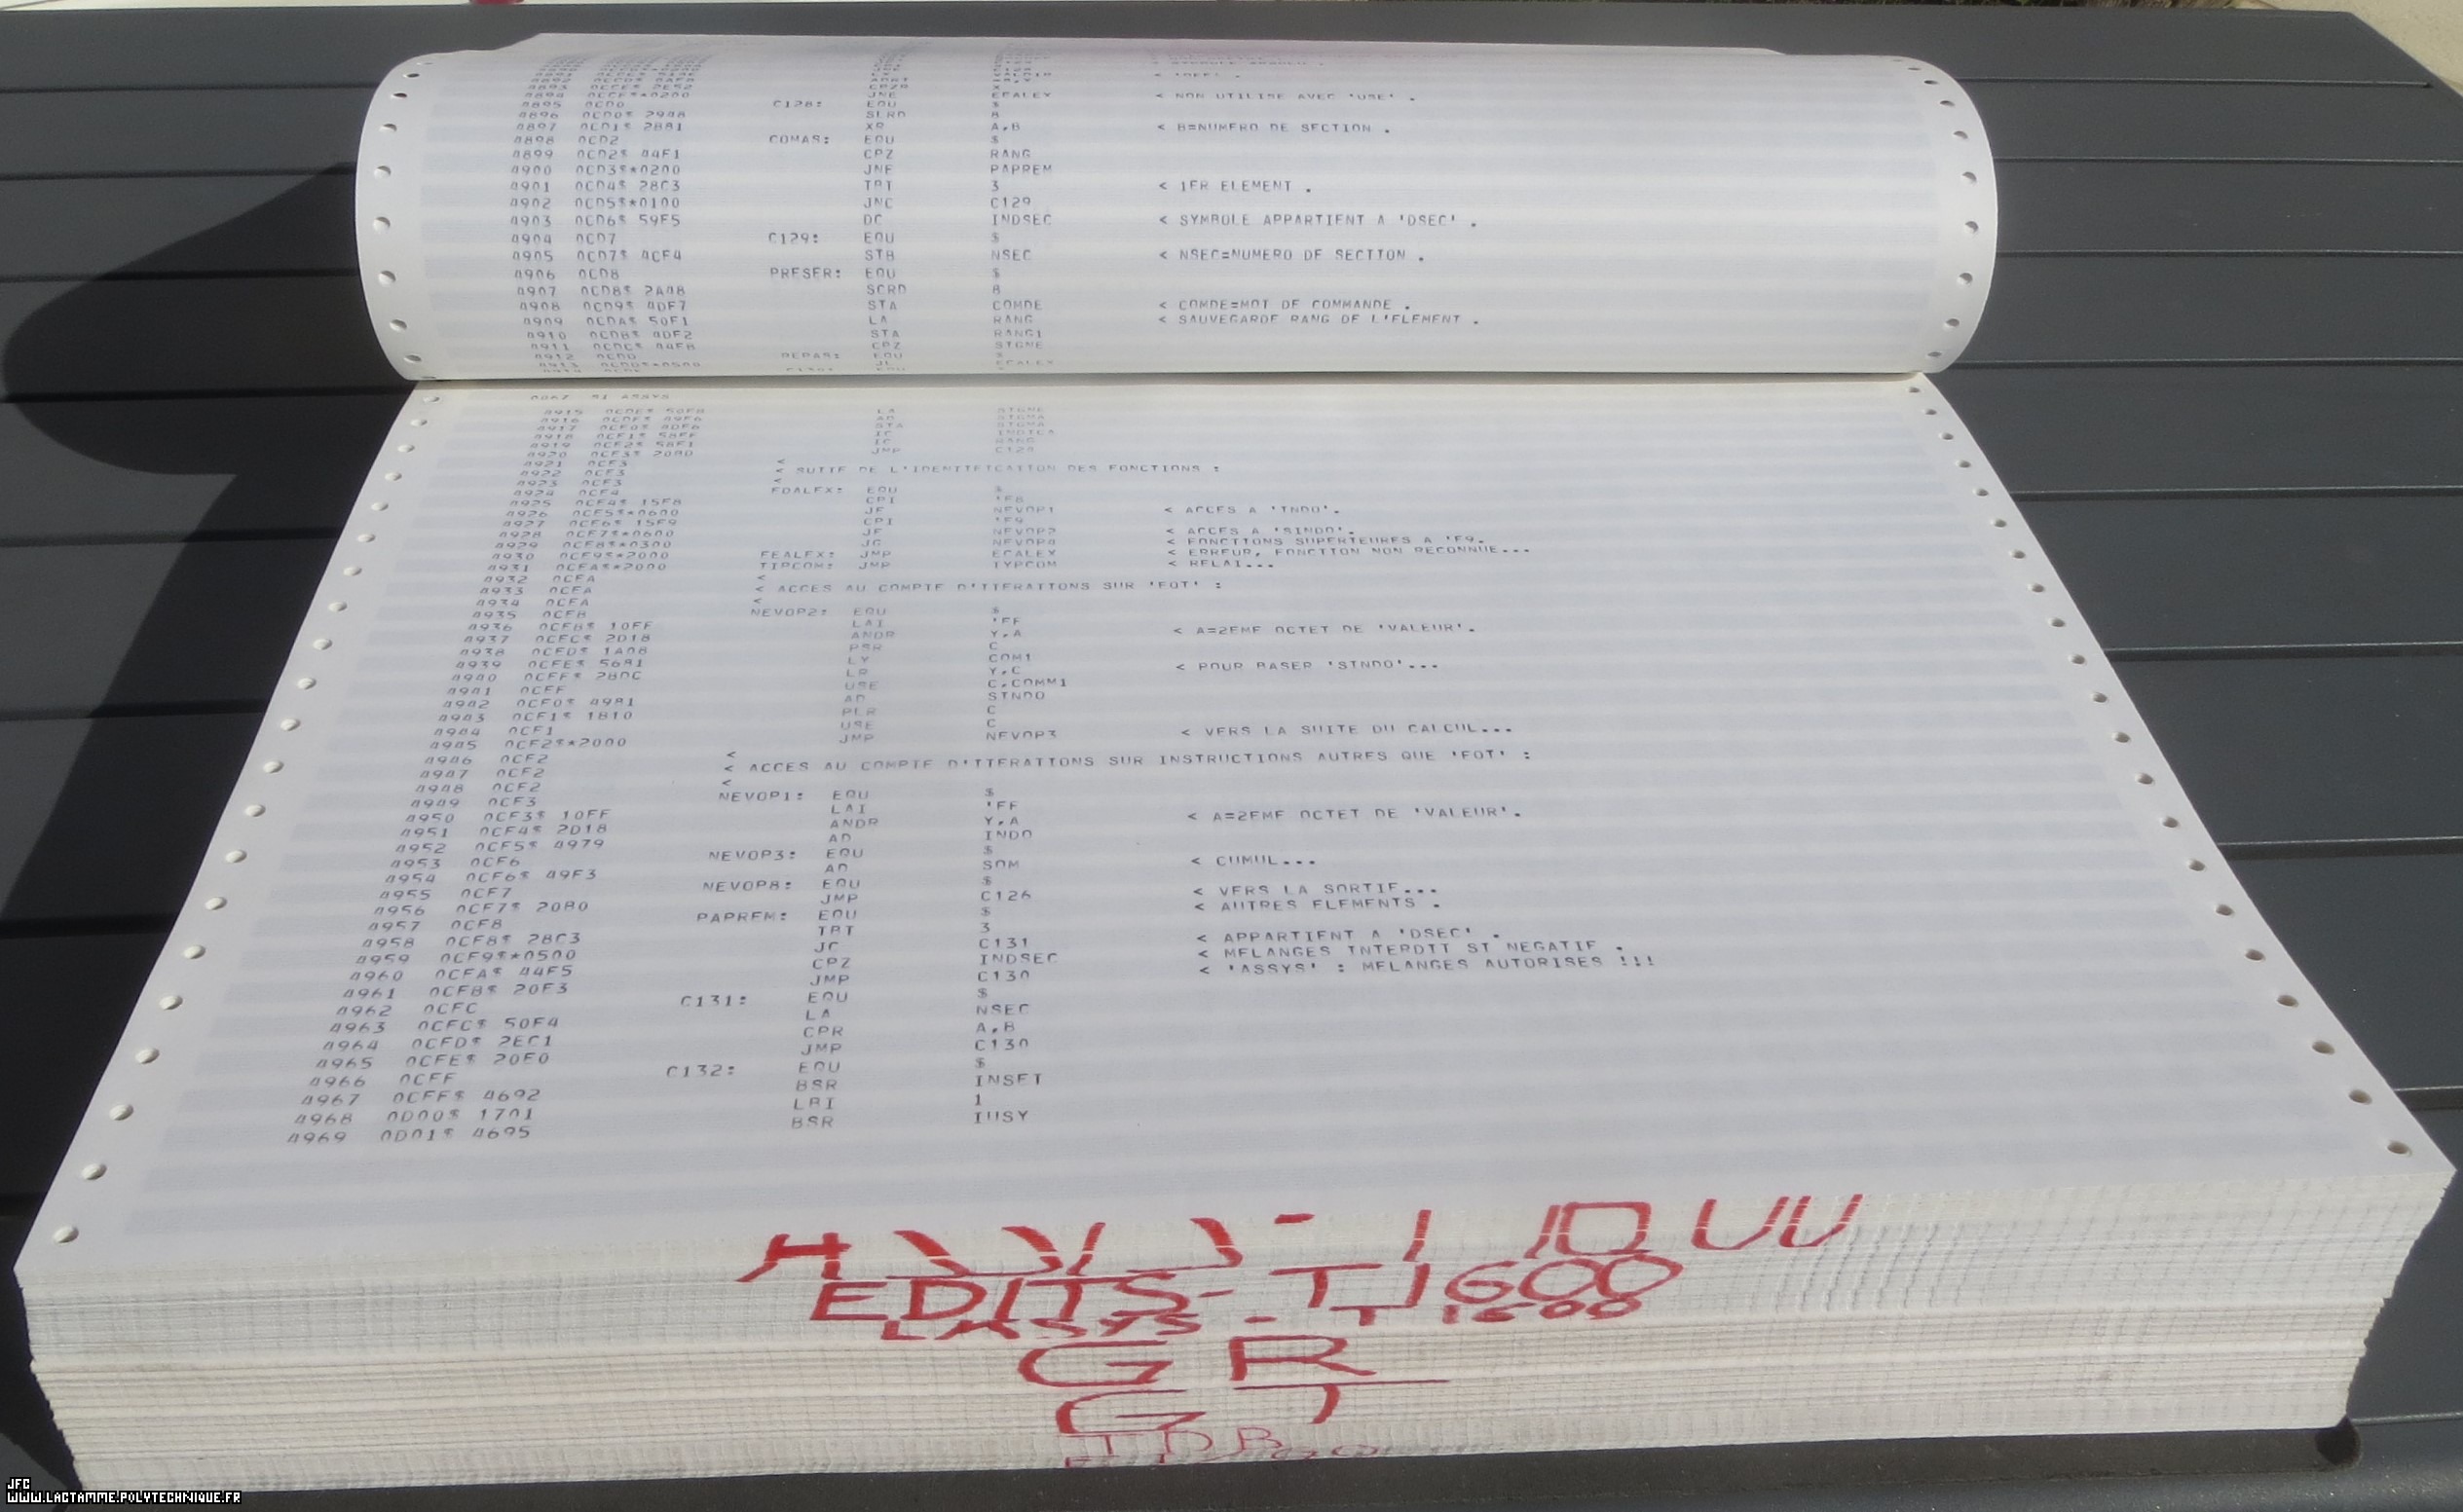 < NON UTILISE AVEC 'USE' .
4895 0CD0 C128: EQU $
4896 0CD0$ 2948 SLRD 8
4897 0CD1$ 2B81 XR A,B < B=NUMERO DE SECTION .
4898 0CD2 COMAS: EQU $
4899 0CD2$ 44F1 CPZ RANG
4900 0CD3$*0200 JNE PAPREM
4901 0CD4$ 28C3 TBT 3 < 1ER ELEMENT .
4902 0CD5$*0100 JNC C129
4903 0CD6$ 59F5 DC INDSEC < SYMBOLE APPARTIENT A 'DSEC' .
4904 0CD7 C129: EQU $
4905 0CD7$ 4CF4 STB NSEC < NSEC=NUMERO DE SECTION .
4906 0CD8 PRESER: EQU $
4907 0CD8$ 2A48 SCRD 8
4908 0CD9$ 4DF7 STA COMDE < COMDE=MOT DE COMMANDE .
4909 0CDA$ 50F1 LA RANG < SAUVEGARDE RANG DE L'ELEMENT .
4910 0CDB$ 4DF2 STA RANG1
4911 0CDC$ 44F8 CPZ SIGNE
4912 0CDD REPAS: EQU $
4913 0CDD$*0500 JL ECALEX
4915 LA SIGNE
4916 AD SIGMA
4917 STA SIGMA
4918 IC
4919 IC RANG
4920 JMP
4921 0CE3 <
4922 0CE3 < SUITE DE L'IDENTIFICATION DES FONCTIONS :
4923 0CE3 <
4924 0CE4 FDALEX: EQU $
4925 0CE4$ 15F8 CPI 'F8
4926 0CE5$*0600 JE NEVOP1 < ACCES A 'INDO'.
4927 0CE6$ 15F9 CPI 'F9
4928 0CE7$*0600 JE NEVOP2 < ACCES A 'SINDO'.
4929 0CE8$*0300 JG NEVOP8 < FONCTIONS SUPERIEURES A 'F9.
4930 0CE9$*2000 FEALEX: JMP ECALEX < ERREUR, FONCTION NON RECONNUE...
4931 0CEA$*2000 TIPCOM: JMP TYPCOM < RELAI...
4932 0CEA <
4933 0CEA < ACCES AU COMPTE D'ITERATIONS SUR 'EOT' :
4934 0CEA <
4935 0CEB NEVOP2: EQU $
4936 0CEB$ 10FF LAI 'FF
4937 0CEC$ 2D18 ANDR Y,A < A=2EME OCTET DE 'VALEUR'.
4938 0CED$ 1A08 PSR C
4939 0CEE$ 5681 LY COM1
4940 0CEF$ 280C LR Y,C < POUR BASER 'SINDO'...
4941 0CEF USE C,COMM1
4942 0CF0$ 4981 AD SINDO
4943 0CF1$ 1B10 PLR C
4944 0CF1 USE C
4945 0CF2$*2000 JMP NEVOP3 < VERS LA SUITE DU CALCUL...
4946 0CF2 <
4947 0CF2 < ACCES AU COMPTE D'ITERATIONS SUR INSTRUCTIONS AUTRES QUE 'EOT' :
4948 0CF2 <
4949 0CF3 NEVOP1: EQU $
4950 0CF3$ 10FF LAI 'FF
4951 0CF4$ 2D18 ANDR Y,A < A=2EME OCTET DE 'VALEUR'.
4952 0CF5$ 4979 AD INDO
4953 0CF6 NEVOP3: EQU $
4954 0CF6$ 49F3 AD SOM < CUMUL...
4955 0CF7 NEVOP8: EQU $
4956 0CF7$ 20B0 JMP C126 < VERS LA SORTIE...
4957 0CF8 PAPREM: EQU $ < AUTRES ELEMENTS .
4958 0CF8$ 28C3 TBT 3
4959 0CF9$*0500 JC C131 < APPARTIENT A 'DSEC' .
4960 0CFA$ 44F5 CPZ INDSEC < MELANGES INTERDIT SI NEGATIF .
4961 0CFB$ 20F3 JMP C130 < 'ASSYS' : MELANGES AUTORISES !!!
4962 0CFC C131: EQU $
4963 0CFC$ 50F4 LA NSEC
4964 0CFD$ 2EC1 CPR A,B
4965 0CFE$ 20F0 JMP C130
4966 0CFF C132: EQU $
4967 0CFF$ 4692 BSR INSET
4968 0D00$ 1701 LBI 1
4969 0D01$ 4695 BSR IUSY
EDITS-T1600
T1600
GR
JFC
WWW.LACTAMME.POLYTECHNIQUE.FR